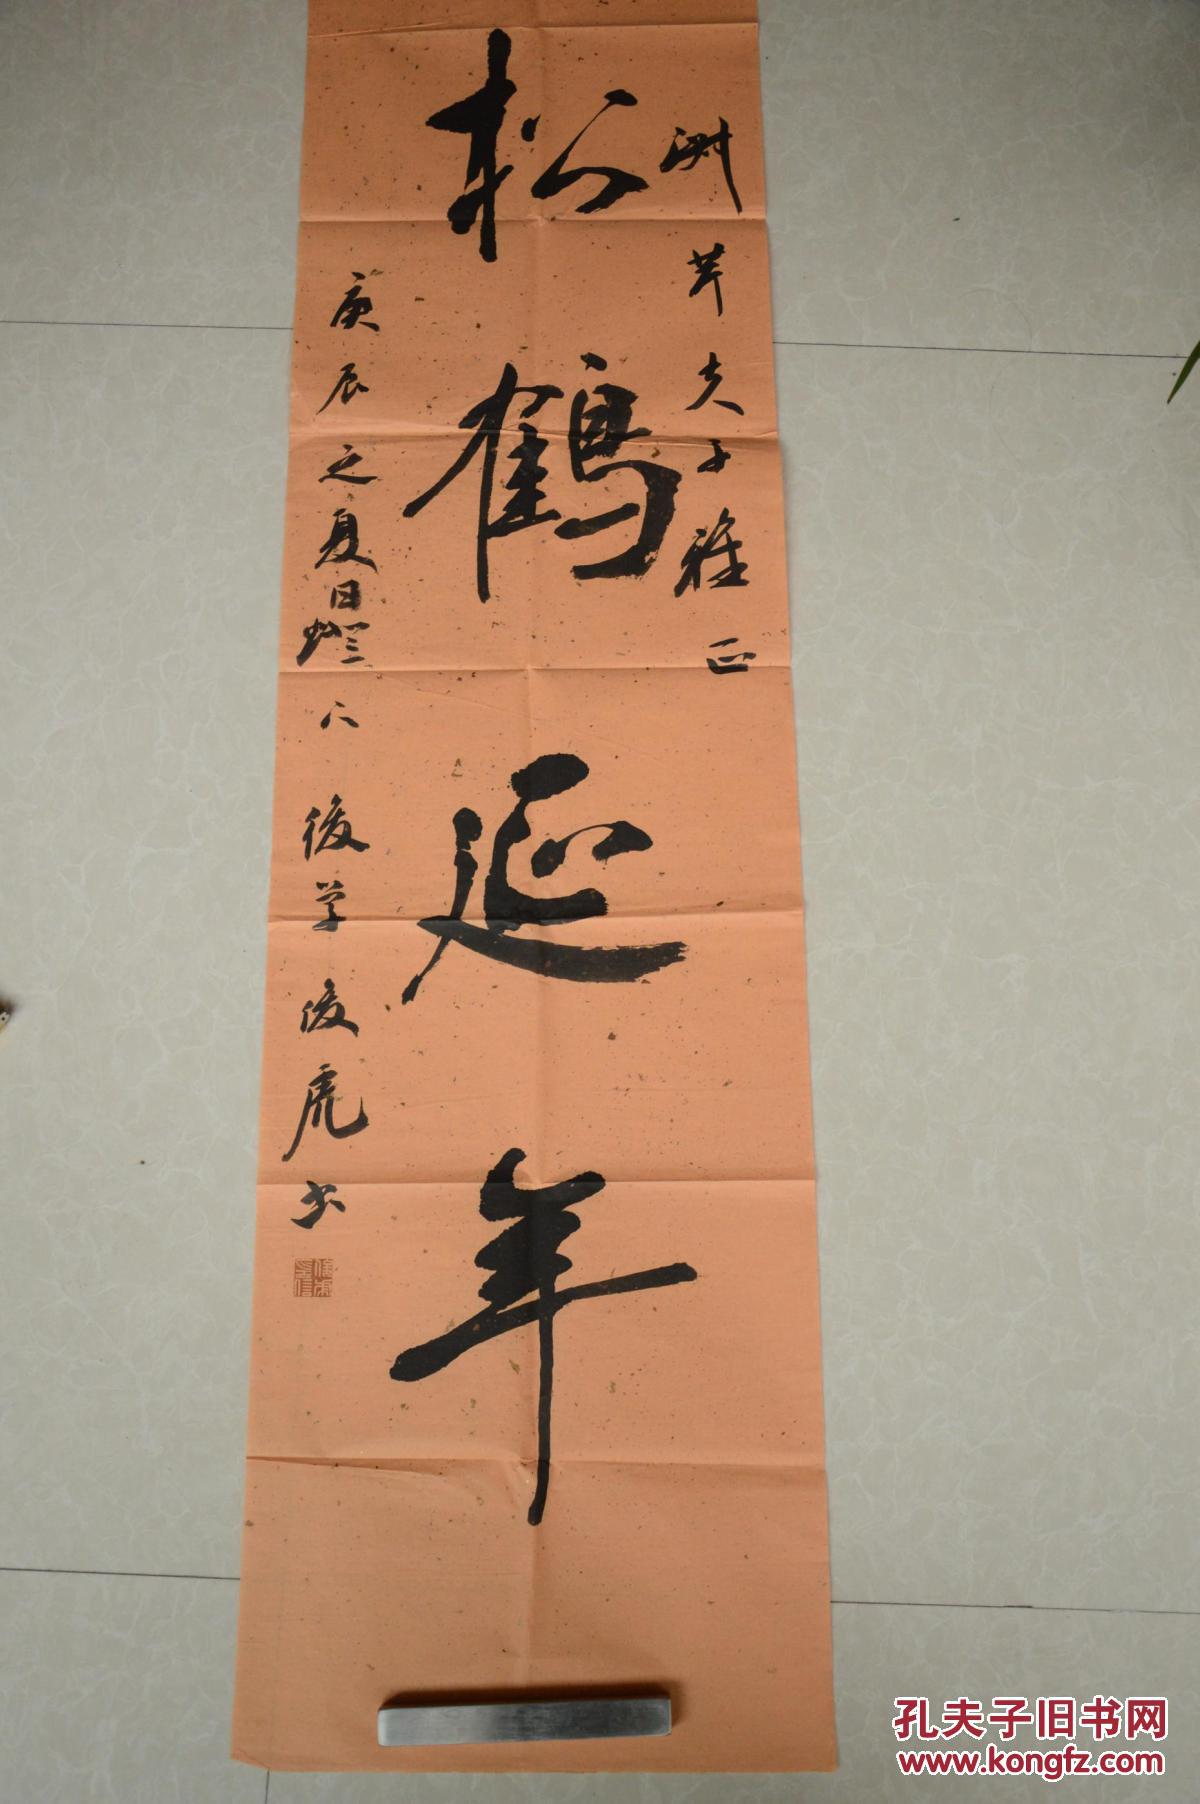 洲芹夫子雅正
松鶴延年
庚辰之夏日燈下 後学 俊虎书
孔夫子旧书网
www.kongfz.com